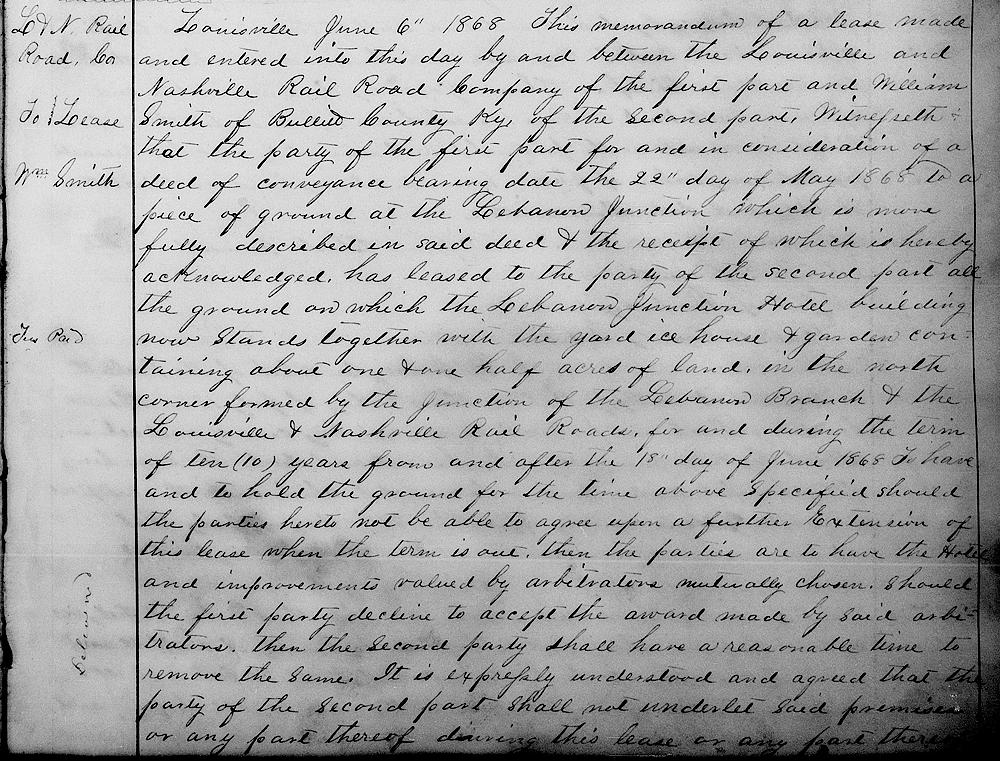 L & N. Rail
Road, Co
To } Lease
Wm Smith
Tax Paid
Louisville June 6" 1868 This memorandum of a lease made
and entered into this day by and between the Louisville and
Nashville Rail Road Company of the first part and William
Smith of Bullitt County Ky, of the second part, Witnesseth:
that the party of the first part for and in consideration of a
deed of conveyance bearing date the 22" day of May 1868 to a
piece of ground at the Lebanon Junction which is more
fully described in said deed & the receipt of which is hereby
acknowledged, has leased to the party of the second part all
the ground on which the Lebanon Junction Hotel building
now stands together with the yard ice house & garden con-
taining about one & one half acres of land, in the north
corner formed by the Junction of the Lebanon Branch & the
Louisville & Nashville Rail Roads, for and during the term
of ten (10) years from and after the 1st day of June 1868 To have
and to hold the ground for the time above specified should
the parties hereto not be able to agree upon a further Extension of
this lease when the term is out, then the parties are to have the Hotel
and improvements valued by arbitrators mutually chosen. Should
the first party decline to accept the award made by said arbi-
trators, then the second party shall have a reasonable time to
remove the same. It is expressly understood and agreed that the
party of the second part shall not underlet said premises
or any part thereof during this lease or any part thereof